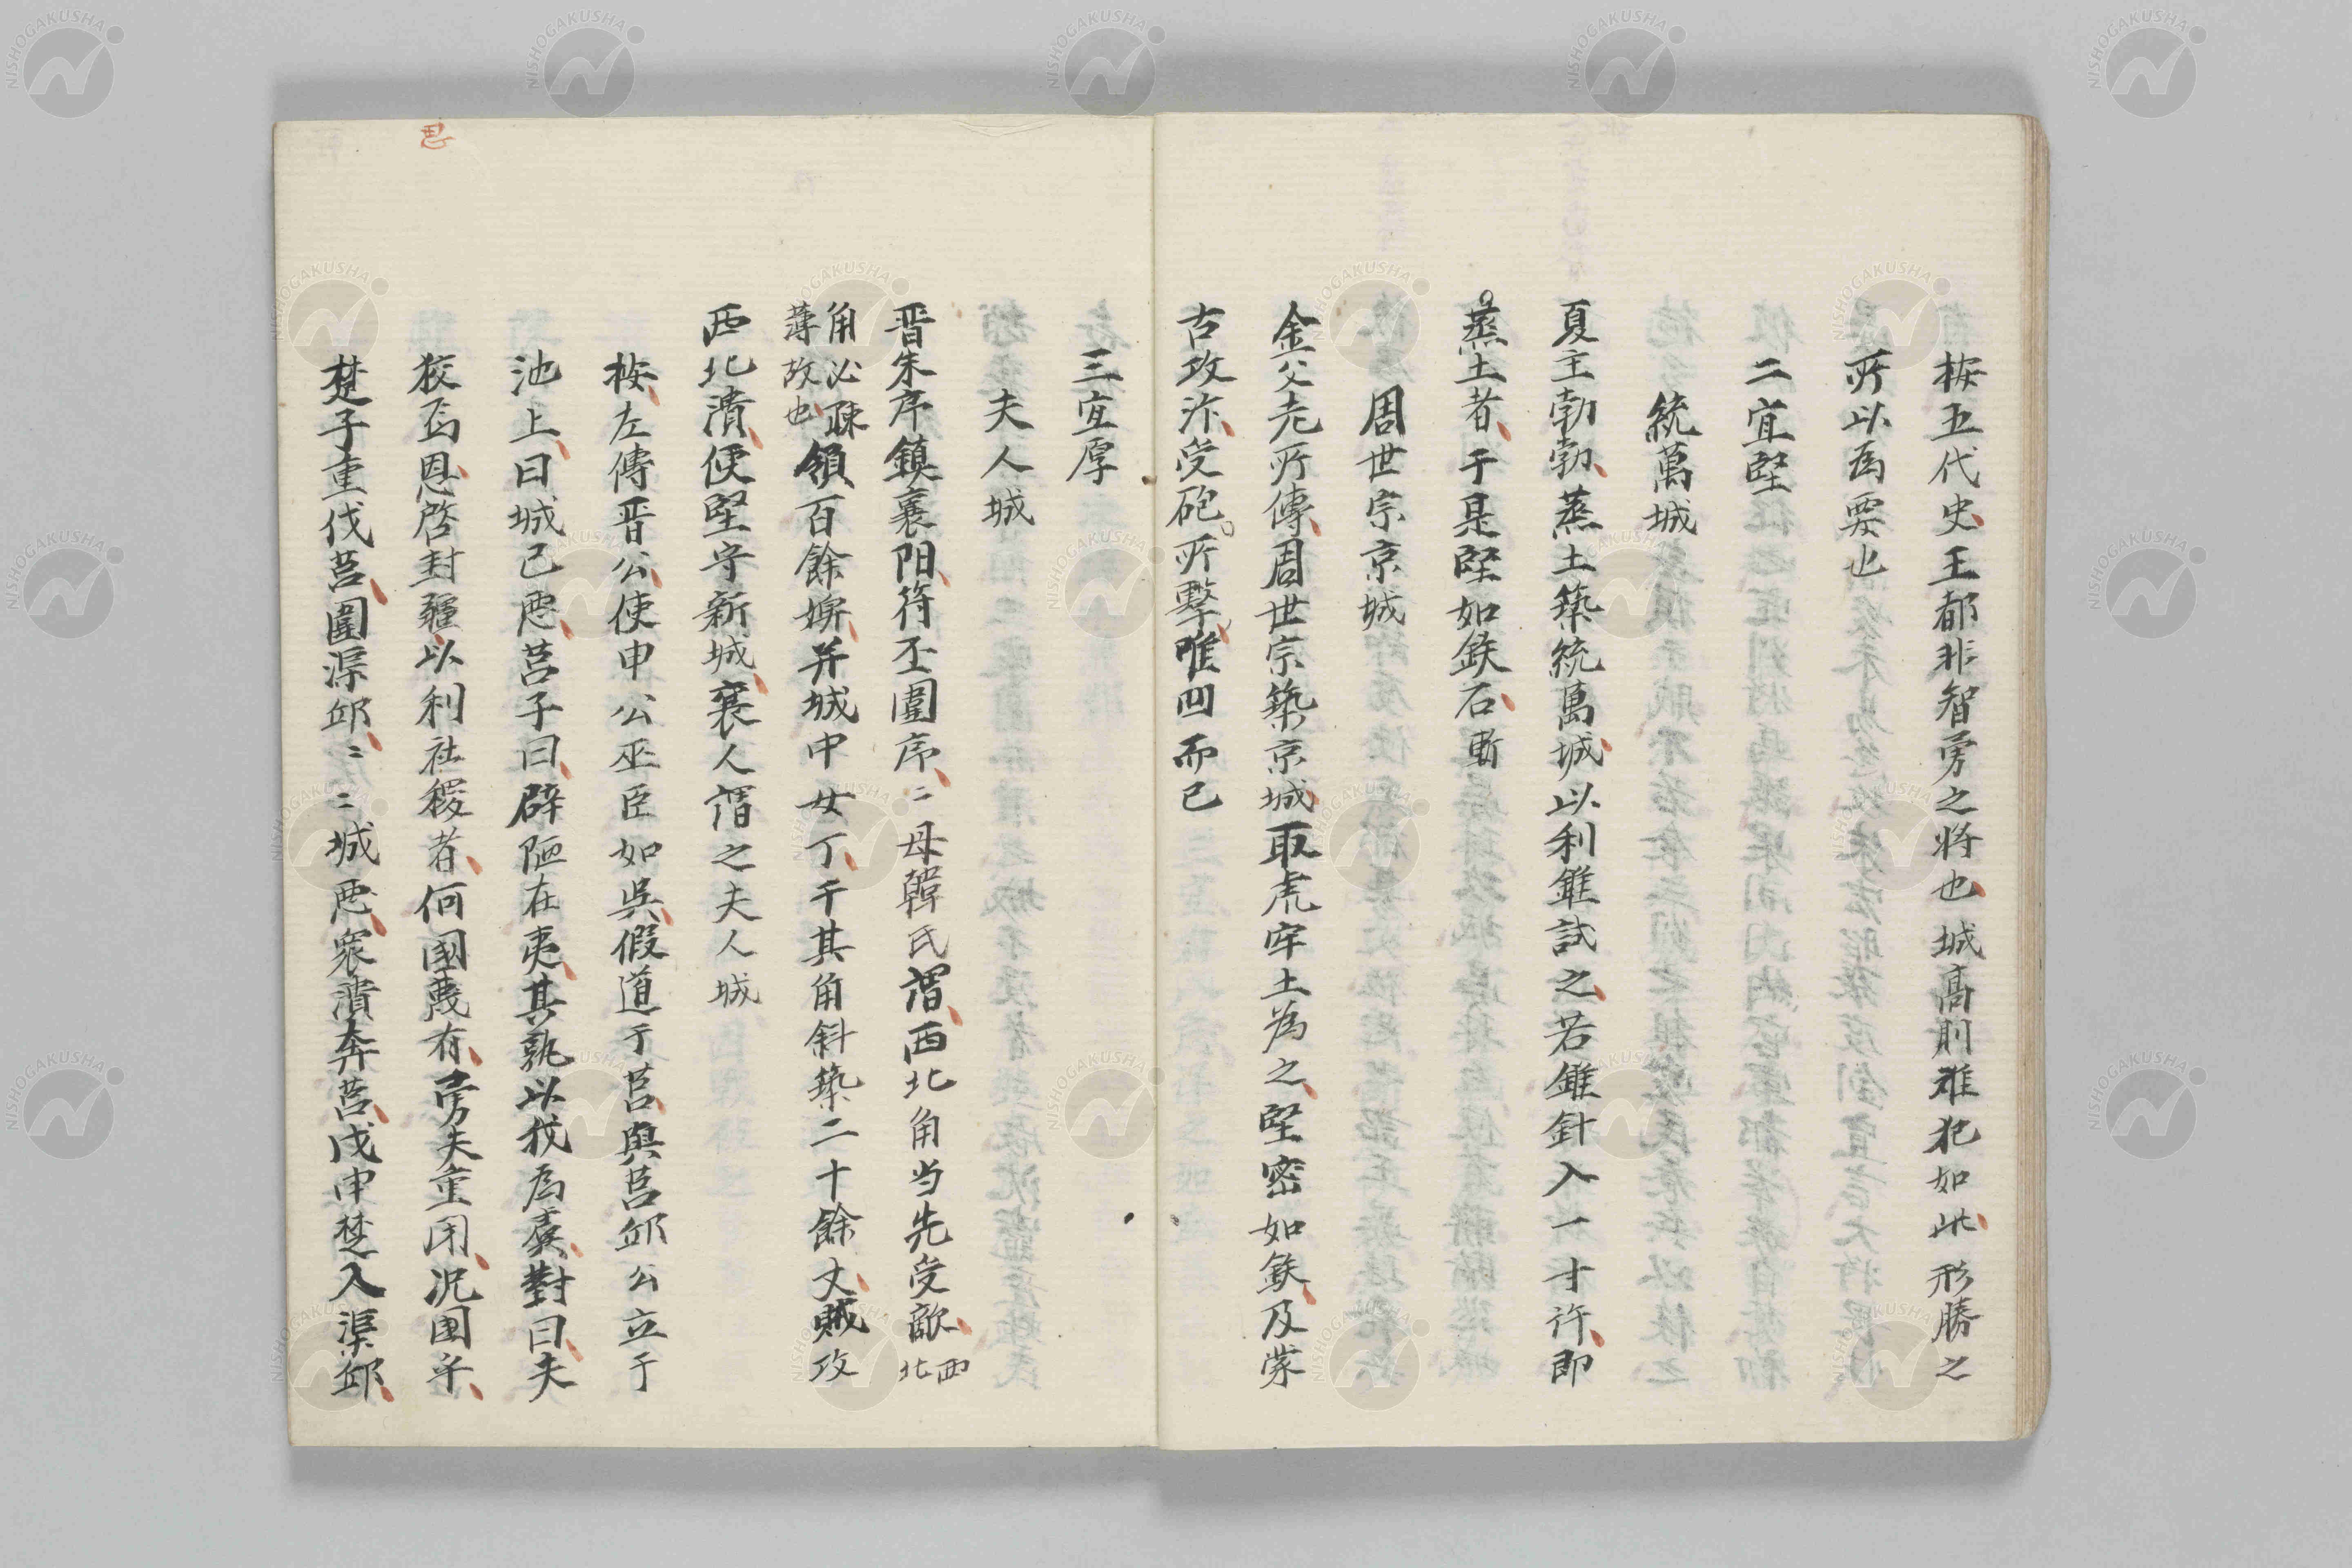 按五代史王都非智勇之将也城高則难犯如此形勝之
所以為要也
二宜堅
統萬城
夏主勃勃蒸土築統萬城以利錐試之若錐針入一寸許即
蒸土者于是堅如鉄石
周世宗京城
金父老所傳周世宗築京城取虎牢土為之堅密如鉄及蒙
古攻汴受砲所擊唯凹而已
三宜厚
夫人城
晋朱序鎮襄阳符丕圍序〻母韓氏謂西北角当先受敵西北
角必疎薄故也領百餘婢并城中女丁于其角斜築二十餘丈賊攻
西北潰便堅守新城襄人謂之夫人城
按左傳晋公使申公巫臣如呉假道于莒與莒邱公立于
池上曰城已悪莒子曰辟陋在夷其孰以我為虞對曰夫
狡焉思啓封疆以利社稷者何國蔑有勇夫重闭况国乎
思
楚子重伐莒圍渠邱〻〻城悪衆潰奔莒戊申楚入渠邱
NISHOGAKUSHA